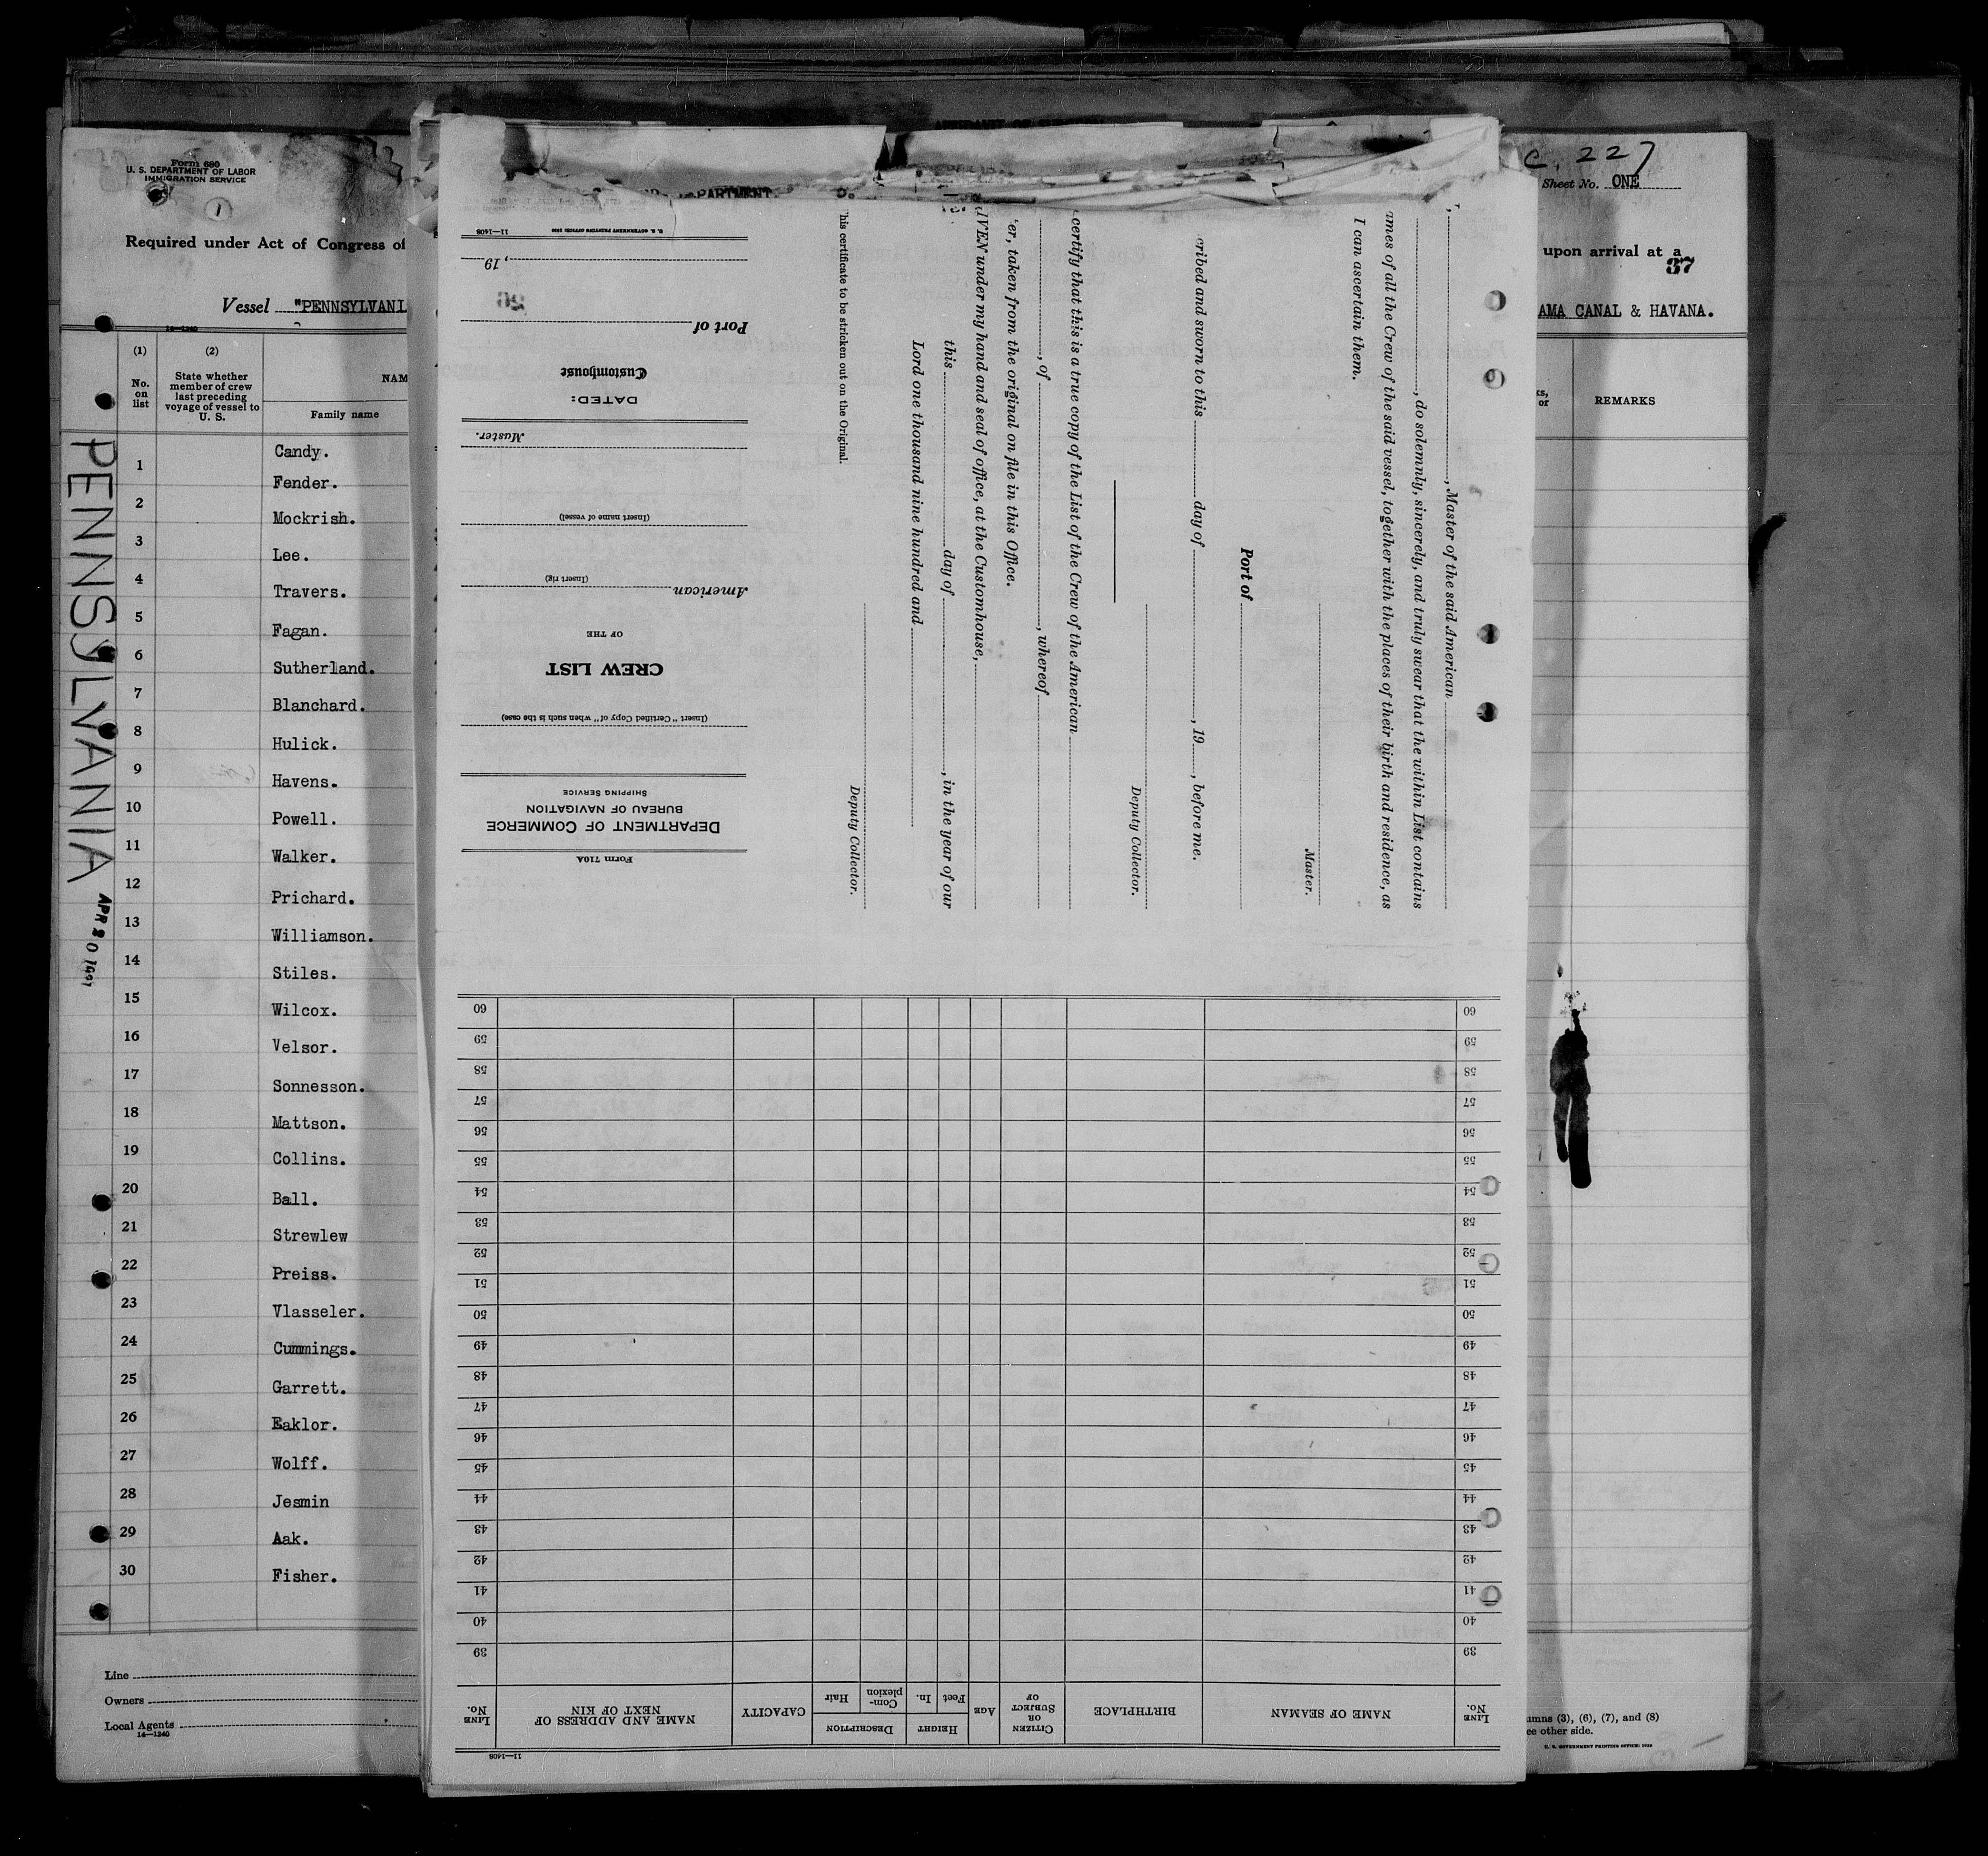 Form 680
U. S. DEPARTMENT OF LABOR
IMMIGRATION SERVICE
1
Required under Act of Congress of
Vessel "PENNSYLVANI
14—1240
(1)
No.
on
list
(2)
State whether
member of crew
last preceding
voyage of vessel to
U. S.
NAM
Family name
PENNSYLVANIA
Candy.
1
Fender.
2
Mockrish.
3
Lee.
4
Travers.
5
Fagan.
6
Sutherland.
7
Blanchard.
8
Hulick.
9
Havens.
10
Powell.
11
Walker.
12
Prichard.
13
Williamson.
14
Stiles.
15
Wilcox.
16
Velsor.
17
Sonnesson.
18
Mattson.
19
Collins.
20
Ball.
21
Strewlew
22
Preiss.
23
Vlasseler.
24
Cummings.
25
Garrett.
26
Eaklor.
27
Wolff.
28
Jesmin
29
Aak.
30
Fisher.
Line
Owners
Local Agents
14—1240
DEPARTMENT
C. 227
Sheet No. ONE
upon arrival at a
37
AMA CANAL & HAVANA.
or
REMARKS
umns (3), (6), (7), and (8)
ee other side.
U. S. GOVERNMENT PRINTING OFFICE: 1926
, Master of the said American
, do solemnly, sincerely, and truly swear that the within List contains
ames of all the Crew of the said vessel, together with the places of their birth and residence, as
I can ascertain them.
Master.
Port of
cribed and sworn to this day of , 19 , before me.
Deputy Collector.
certify that this is a true copy of the List of the Crew of the American
, of , whereof
er, taken from the original on file in this Office.
IVEN under my hand and seal of office, at the Customhouse,
this day of , in the year of our
Lord one thousand nine hundred and
Deputy Collector.
his certificate to be stricken out on the Original.
Form 710A
DEPARTMENT OF COMMERCE
BUREAU OF NAVIGATION
SHIPPING SERVICE
(Insert "Certified Copy of" when such is the case)
CREW LIST
OF THE
American
(Insert rig)
(Insert name of vessel)
Master.
DATED:
Customhouse
Port of
, 19
U. S. GOVERNMENT PRINTING OFFICE: 11—1408
11—1408
LINE No.
NAME OF SEAMAN
BIRTHPLACE
CITIZEN OR SUBJECT OF
AGE
HEIGHT
Feet
In.
DESCRIPTION
Com-plexion
Hair
CAPACITY
NAME AND ADDRESS OF NEXT OF KIN
LINE No.
39 39
40 40
41 41
42 42
43 43
44 44
45 45
46 46
47 47
48 48
49 49
50 50
51 51
52 52
53 53
54 54
55 55
56 56
57 57
58 58
59 59
60 60